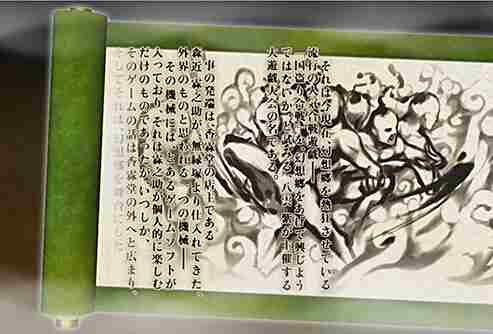 それは今現在、幻想郷を熱狂させている
流行の 合戦遊戯――
国盗り合戦を幻想郷をあげて興じよう
ではないか、と試みる、八雲紫が主催する
大遊戯大会の名である。
事の発端は、香霖堂の店主である
森近霖之助が、無縁塚より仕入れてきた。
外界のものと思われる、一つの機械――
その機械には、とあるゲームソフトが
入っており、それは霖之助が個人的に楽しむ
だけのものであったが、いつしか、
そのゲームの話は香霖堂の外へと広まり、
そしてそれは、幻想郷を舞台にした